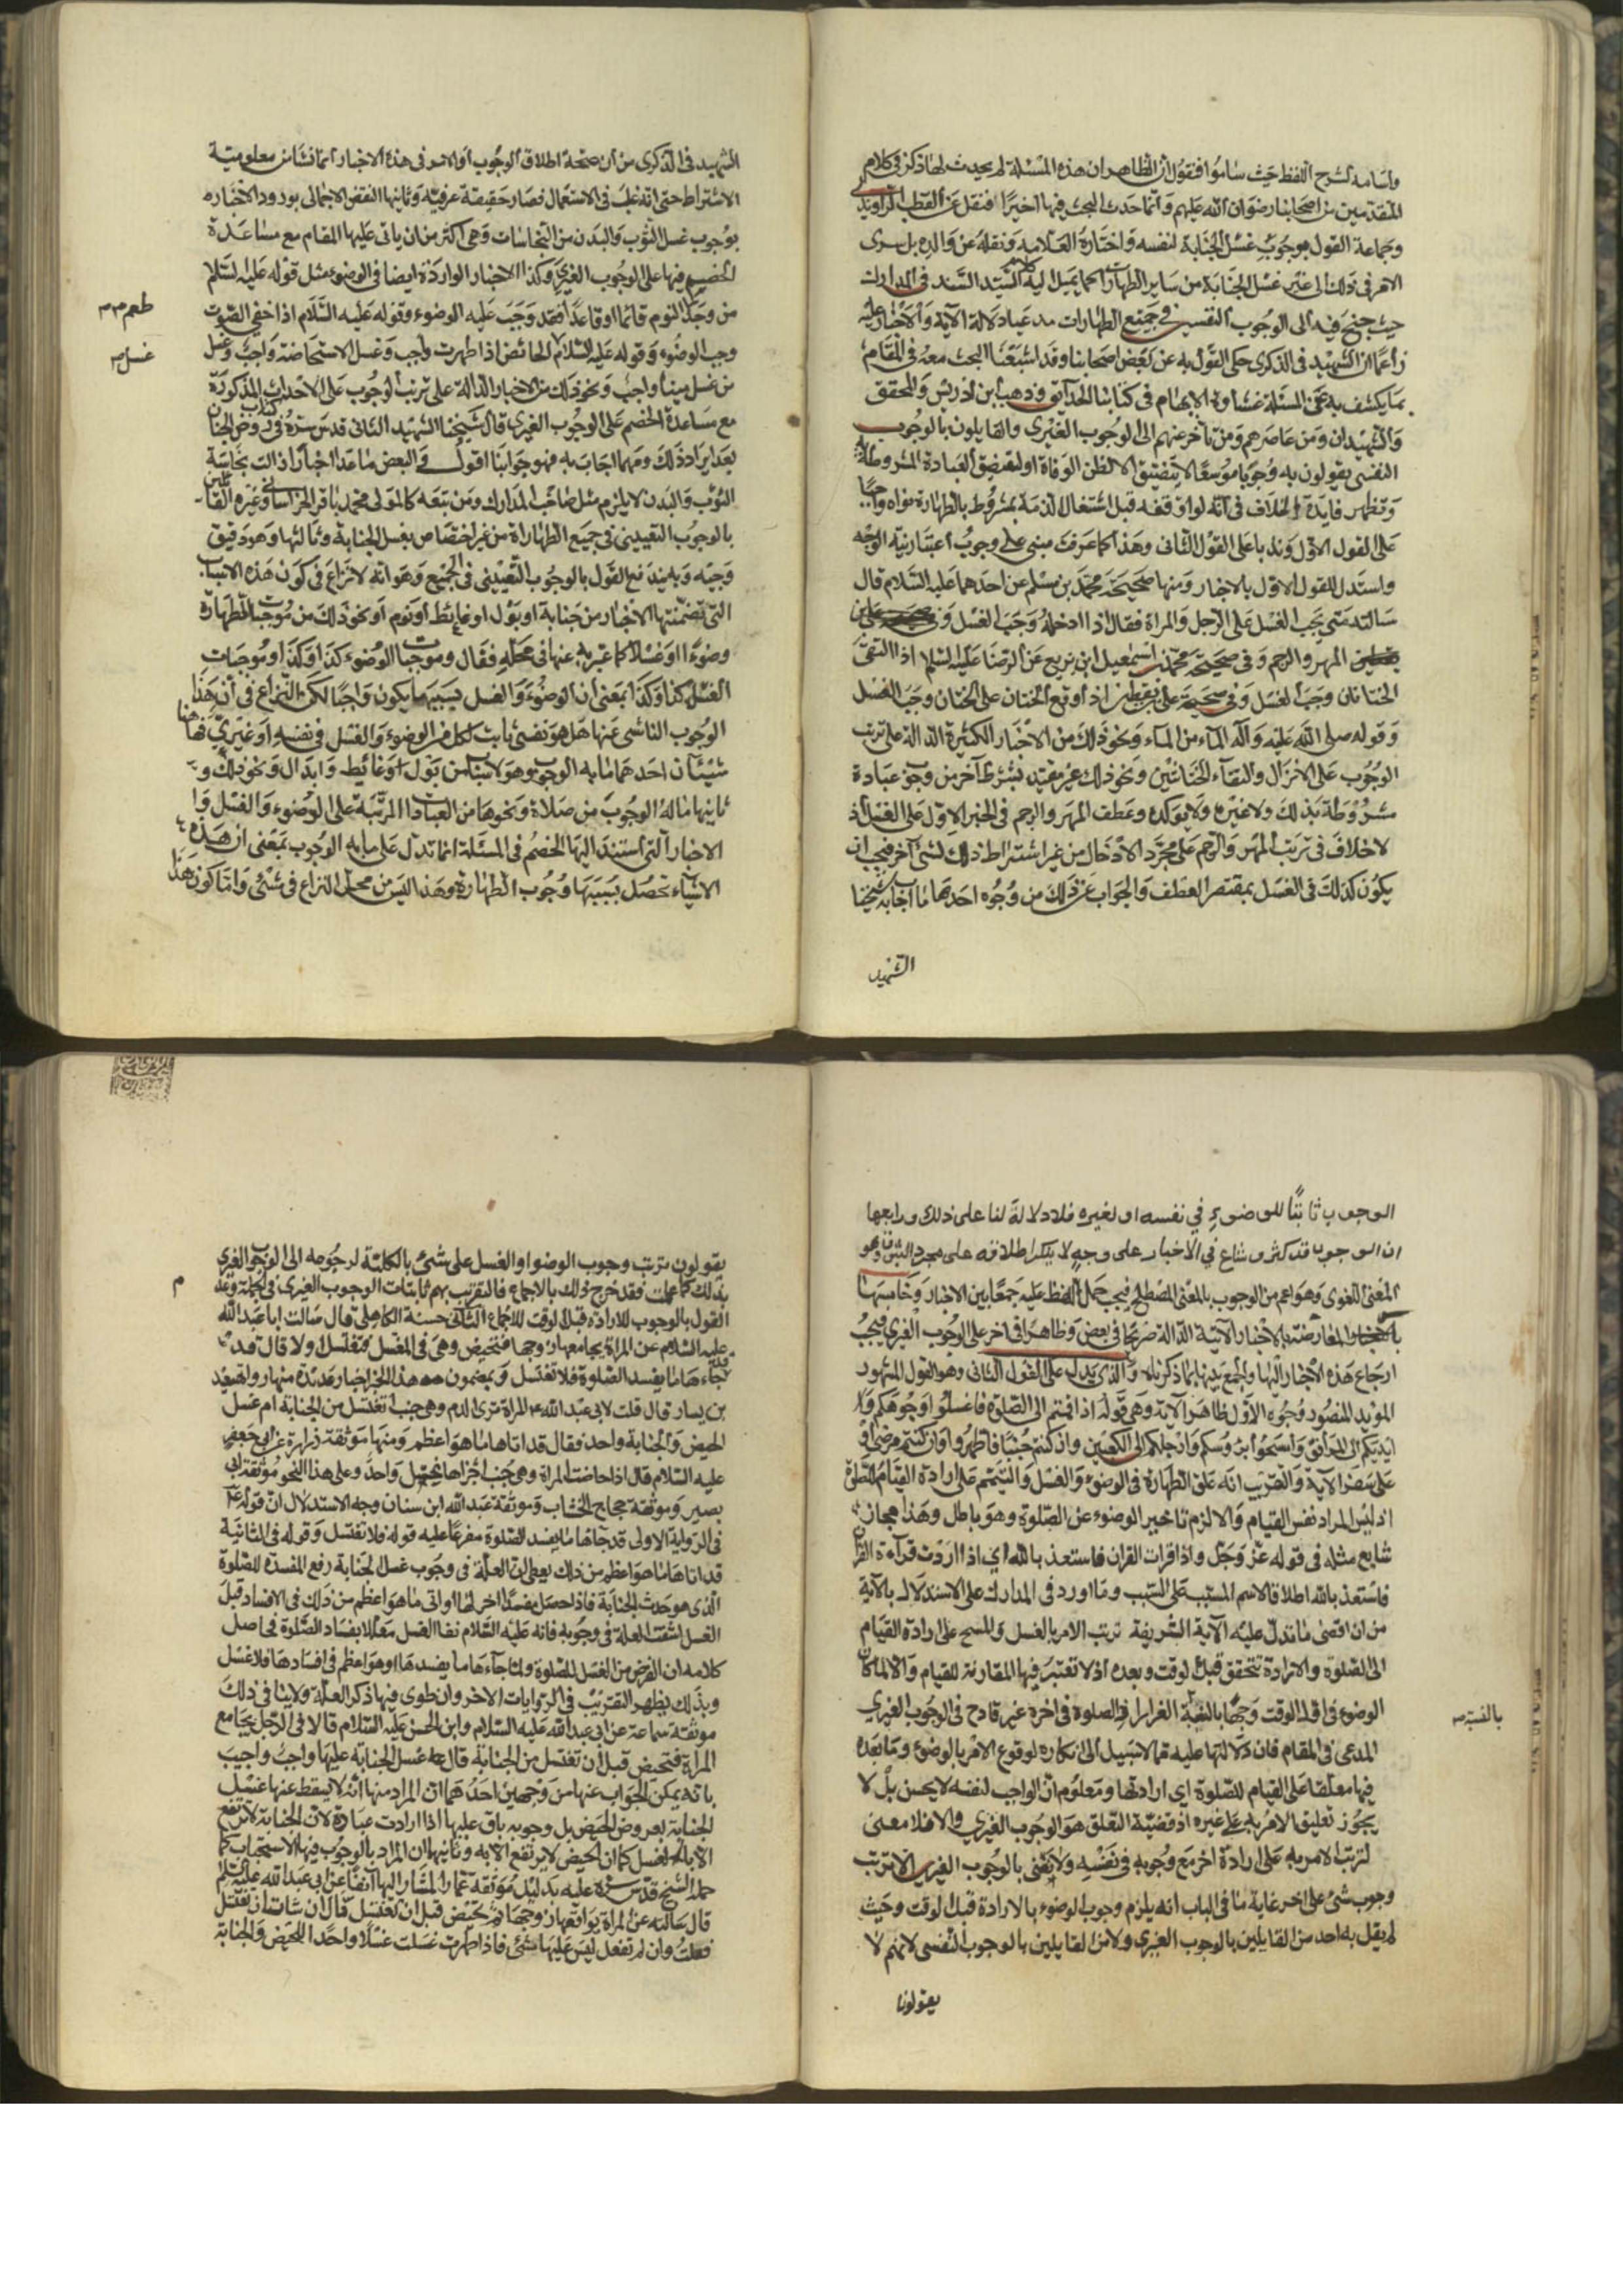 واسامه لشرح اللفظ حيث ساموا فنقول ان الظاهر ان هذه المسئلة لم يحدث لها ذكر في كلام
المتقدمين من اصحابنا رضوان الله عليهم وانما حدث البحث فيها اخيرا فنقل عن القطب الراوندي
وجماعة القول بوجوب غسل الجنابة لنفسه واختاره العلامه ونقله عن والده بل سرى
الامر في ذلك الى غير غسل الجنابة من ساير الطهارات كما يميل اليه كلام السيد السند في المدارك
حيث جنح فيه الى الوجوب النفسي في جميع الطهارات مدعيا دلالة الآية والاخبار عليه
زاعما ان الشهيد في الذكرى حكى القول به عن بعض اصحابنا وقد اشبعنا البحث معه في المقام
بما يكشف به عن المسئلة غشاوة الابهام في كتابنا الحدايق وذهب ابن ادريس والمحقق
والشهيدان ومن عاصرهم ومن تاخر عنهم الى الوجوب الغيري والقايلون بالوجوب
النفسي يقولون به وجوبا موسعا لا يتضيق الا لظن الوفاة او لتضيق العبادة المشروطة به
وتظهر فايدة الخلاف في انه لو اوقعه قبل اشتغال الذمة بمشروط بالطهارة نواه واجبا
على القول الاول وندبا على القول الثاني وهذا كما عرفت مبني على وجوب اعتبار نية الوجه
واستدل للقول الاول بالاخبار ومنها صحيحة محمد بن مسلم عن احدهما عليه السلام قال
سالته متى يجب الغسل على الرجل والمراة فقال اذا ادخله وجب الغسل
المهر والرجم وفي صحيحة محمد بن اسمعيل ابن بزيع عن الرضا عليه السلم اذا التقى
الختانان وجب الغسل وفي صحيحة علي بن يقطين اذا وقع الختان على الختان وجب الغسل
وقوله صلى الله عليه وآله الماء من الماء ونحو ذلك من الاخبار الكثيرة الدالة على ترتب
الوجوب على الانزال والتقاء الختانين ونحو ذلك غير مقيد بشرط آخر من وجوب عبادة
مشروطة بذلك ولا غيره ويؤكده وعطف المهر والرجم في الخبر الاول على الغسل اذ
لا خلاف في ترتب المهر والرجم على مجرد الادخال من غير اشتراط ذلك لشئ آخر فيجب ان
يكون كذلك في الغسل بمقتضى العطف والجواب عن ذلك من وجوه احدها ما اجاب به شيخنا
الشهيد
الشهيد في الذكرى من ان صحة اطلاق الوجوب او الامر في هذه الاخبار انما نشا من معلومية
الاشتراط حتى انه غلب في الاستعمال فصار حقيقة عرفية وثانيها النقض الاجمالي بورود الاخبار
بوجوب غسل الثوب والبدن من النجاسات وهي اكثر من ان ياتي عليها المقام مع مساعدة
الخصم فيها على الوجوب الغيري وكذا الاخبار الواردة ايضا في الوضوء مثل قوله عليه السلم
من وجد طعم النوم قائما او قاعدا فقد وجب عليه الوضوء وقوله عليه السلام اذا خفي الصوت
وجب الوضوء وقوله عليه السلام الحائض اذا طهرت واجب وغسل الاستحاضة واجب وغسل
من غسل ميتا واجب ونحو ذلك من الاخبار الدالة على ترتب الوجوب على الاحداث المذكورة
مع مساعدة الخصم على الوجوب الغيري قال شيخنا الشهيد الثاني قدس سره في كتاب روض الجنان
بعد ايراد ذلك ومهما اجاب به فهو جوابنا اقول في البعض ما عدا اخبار ازالت نجاسة
الثوب والبدن لا يلزم مثل صاحب المدارك ومن تبعه كالمولى محمد باقر الخراساني وغيره القائلين
بالوجوب التعييني في جميع الطهاراة من غير اختصاص بغسل الجنابة وثالثها وهو دقيق
وجيه وبه يندفع القول بالوجوب التعييني في الجميع وهو انه لا نزاع في كون هذه الاسباب
التي تضمنتها الاخبار من جنابة او بول او غائط او نوم او نحو ذلك من موجبات الطهارة
وضوءا او غسلا كما عبر به عنها في محله فقال وموجبات الوضوء كذا وكذا وموجبات
الغسل كذا وكذا بمعنى ان الوضوء والغسل بسببها يكون واجبا لكن النزاع في ان هذا
الوجوب الناشي عنها هل هو نفسي ثابت لكل من الوضوء والغسل في نفسه او غيري فهاهنا
شيئان احدهما ما به الوجوب وهو لاسباب من بول او غائط وابدال ونحو ذلك و
ثانيها ماله الوجوب من صلاة ونحوها من العبادات المرتبة على الوضوء والغسل وا
الاخبار التي استند اليها الخصم في المسئلة انما تدل على ما به الوجوب بمعنى ان هذه
الاشياء تحصل بسببها وجوب الطهارة وهذا ليس من محل النزاع في شئ وانما كون هذا
طعم صح
غسل صح
الوجوب ثابتا للوضوء في نفسه او لغيره فلا دلالة لنا على ذلك ورابعها
ان الوجوب قد كثر وشاع في الاخبار على وجه لا ينكر اطلاقه على مجرد الثبوت وهو
المعنى اللغوي وهو اعم من الوجوب بالمعنى المصطلح فيجب حمل اللفظ عليه جمعا بين الاخبار وخامسها
المعارضة بالاخبار الآتية الدالة صريحا في بعض وظاهرا في اخر على الوجوب الغيري فيجب
ارجاع هذه الاخبار اليها والجمع بينها بما ذكرناه والذي يدل على القول الثاني وهو القول المشهور
المؤيد المنصور وجوه الاول ظاهر الآية وهي قوله اذا قمتم الى الصلوة فاغسلوا وجوهكم و
ايديكم الى المرافق وامسحوا برؤسكم وارجلكم الى الكعبين وان كنتم جنبا فاطهروا وان كنتم مرضى او
على سفر الآية والتقريب انه علق الطهارة في الوضوء والغسل والتيمم على ارادة القيام للصلوة
اذ ليس المراد نفس القيام والا لزم تاخير الوضوء عن الصلوة وهو باطل وهذا مجاز
شايع مثله في قوله عز وجل واذا قرات القران فاستعذ بالله اي اذا اردت قرآءة القرآن
فاستعذ بالله اطلاقا لاسم المسبب على السبب وما اورد في المدارك على الاستدلال بالآية
من ان اقصى ما تدل عليه الآية الشريفة ترتب الامر بالغسل والمسح على ارادة القيام
الى الصلوة والارادة تتحقق قبل الوقت وبعده اذ لا تعتبر فيها المقارنة للقيام والا لما كان
الوضوء في اول الوقت واجبا بالنسبة الى من اراد الصلوة في اخره غير قادح في الوجوب الغيري
المدعى في المقام فان دلالتها عليه مما لا سبيل الى انكاره لوقوع الامر بالوضوء وما بعده
فيها معلقا على القيام للصلوة اي ارادتها ومعلوم ان الواجب لنفسه لا يحسن بل لا
يجوز تعليق الامر به على غيره اذ قضية التعلق هو الوجوب الغيري والا فلا معنى
لترتب الامر به على ارادة اخر مع وجوبه في نفسه ولا يعنى بالوجوب الغيري الا ترتب
وجوب شئ على اخر غاية ما في الباب انه يلزم وجوب الوضوء بالارادة قبل الوقت وحيث
لم يقل به احد من القايلين بالوجوب الغيري ولا من القايلين بالوجوب النفسي لانهم لا
يقولون
بالنسبة صح
يقولون بترتب وجوب الوضوء او الغسل على شئ بالكلية لرجوعه الى الوجوب الغيري
بذلك كما علمت فقد خرج ذلك بالاجماع فالتقريب بهم ثابتات الوجوب الغيري في الجملة وعدم
القول بالوجوب للارادة قبل الوقت للاجماع الثاني حسنة الكاهلي قال سالت ابا عبد الله
عليه السلام عن المراة يجامعها زوجها فتحيض وهي في المغتسل تغتسل او لا قال قد
جاءها ما يفسد الصلوة فلا تغتسل وبمضمون هذا الخبر اخبار عديدة منها رواية سعيد
بن يسار قال قلت لابي عبد الله ع المراة ترى الدم وهي جنب اتغتسل من الجنابة ام غسل
الحيض والجنابة واحد فقال قد اتاها ما هو اعظم ومنها موثقة زرارة عن ابي جعفر
عليه السلام قال اذا حاضت المراة وهي جنب اجزاها غسل واحد وعلى هذا النحو موثقة ابي
بصير وموثقة حجاج الخشاب وموثقة عبد الله ابن سنان وجه الاستدلال ان قوله ع
في الرواية الاولى قد جاءها ما يفسد الصلوة مفرعا عليه قوله فلا تغتسل وقوله في الثانية
قد اتاها ما هو اعظم من ذلك يعطي ان العلة في وجوب غسل الجنابة رفع المفسدة للصلوة
الذي هو حدث الجنابة فاذا حصل مفسدا اخر لها او اتى ما هو اعظم من ذلك في الافساد قبل
الغسل انتفت العلة في وجوبه فانه عليه السلام نفا الغسل معللا بفساد الصلوة في اصل
كلامه ان الغرض من الغسل للصلوة ولما جآءها ما يفسدها وهو اعظم في افسادها فلا غسل
وبذلك يظهر التقريب في الروايات الاخر وان طوى فيها ذكر العلة ولا ينافي ذلك
موثقة سماعة عن ابي عبد الله عليه السلام وابن الحسن عليه السلام قالا في الرجل يجامع
المراة فتحيض قبل ان تغتسل من الجنابة قال غسل الجنابة عليها واجب واجيب
بانه يمكن الجواب عنها من وجهين احدهما ان المراد منها انه لا يسقط عنها غسل
الجنابة لعروض الحيض بل وجوبه باق عليها اذا ارادت عبادة لان الجنابة لا ترتفع
الا بالغسل كما ان الحيض لا يرتفع الا به وثانيها ان المراد بالوجوب فيها الاستحباب كما
حمله الشيخ قدس سره عليه بدليل موثقة عمار المشار اليها آنفا عن ابي عبد الله عليه السلم
قال سالته عن المراة يواقعها زوجها ثم تحيض قبل ان تغتسل قال ان شائت ان تغتسل
فعلت وان لم تفعل ليس عليها شئ فاذا طهرت غسلت غسلا واحدا للحيض والجنابة
م